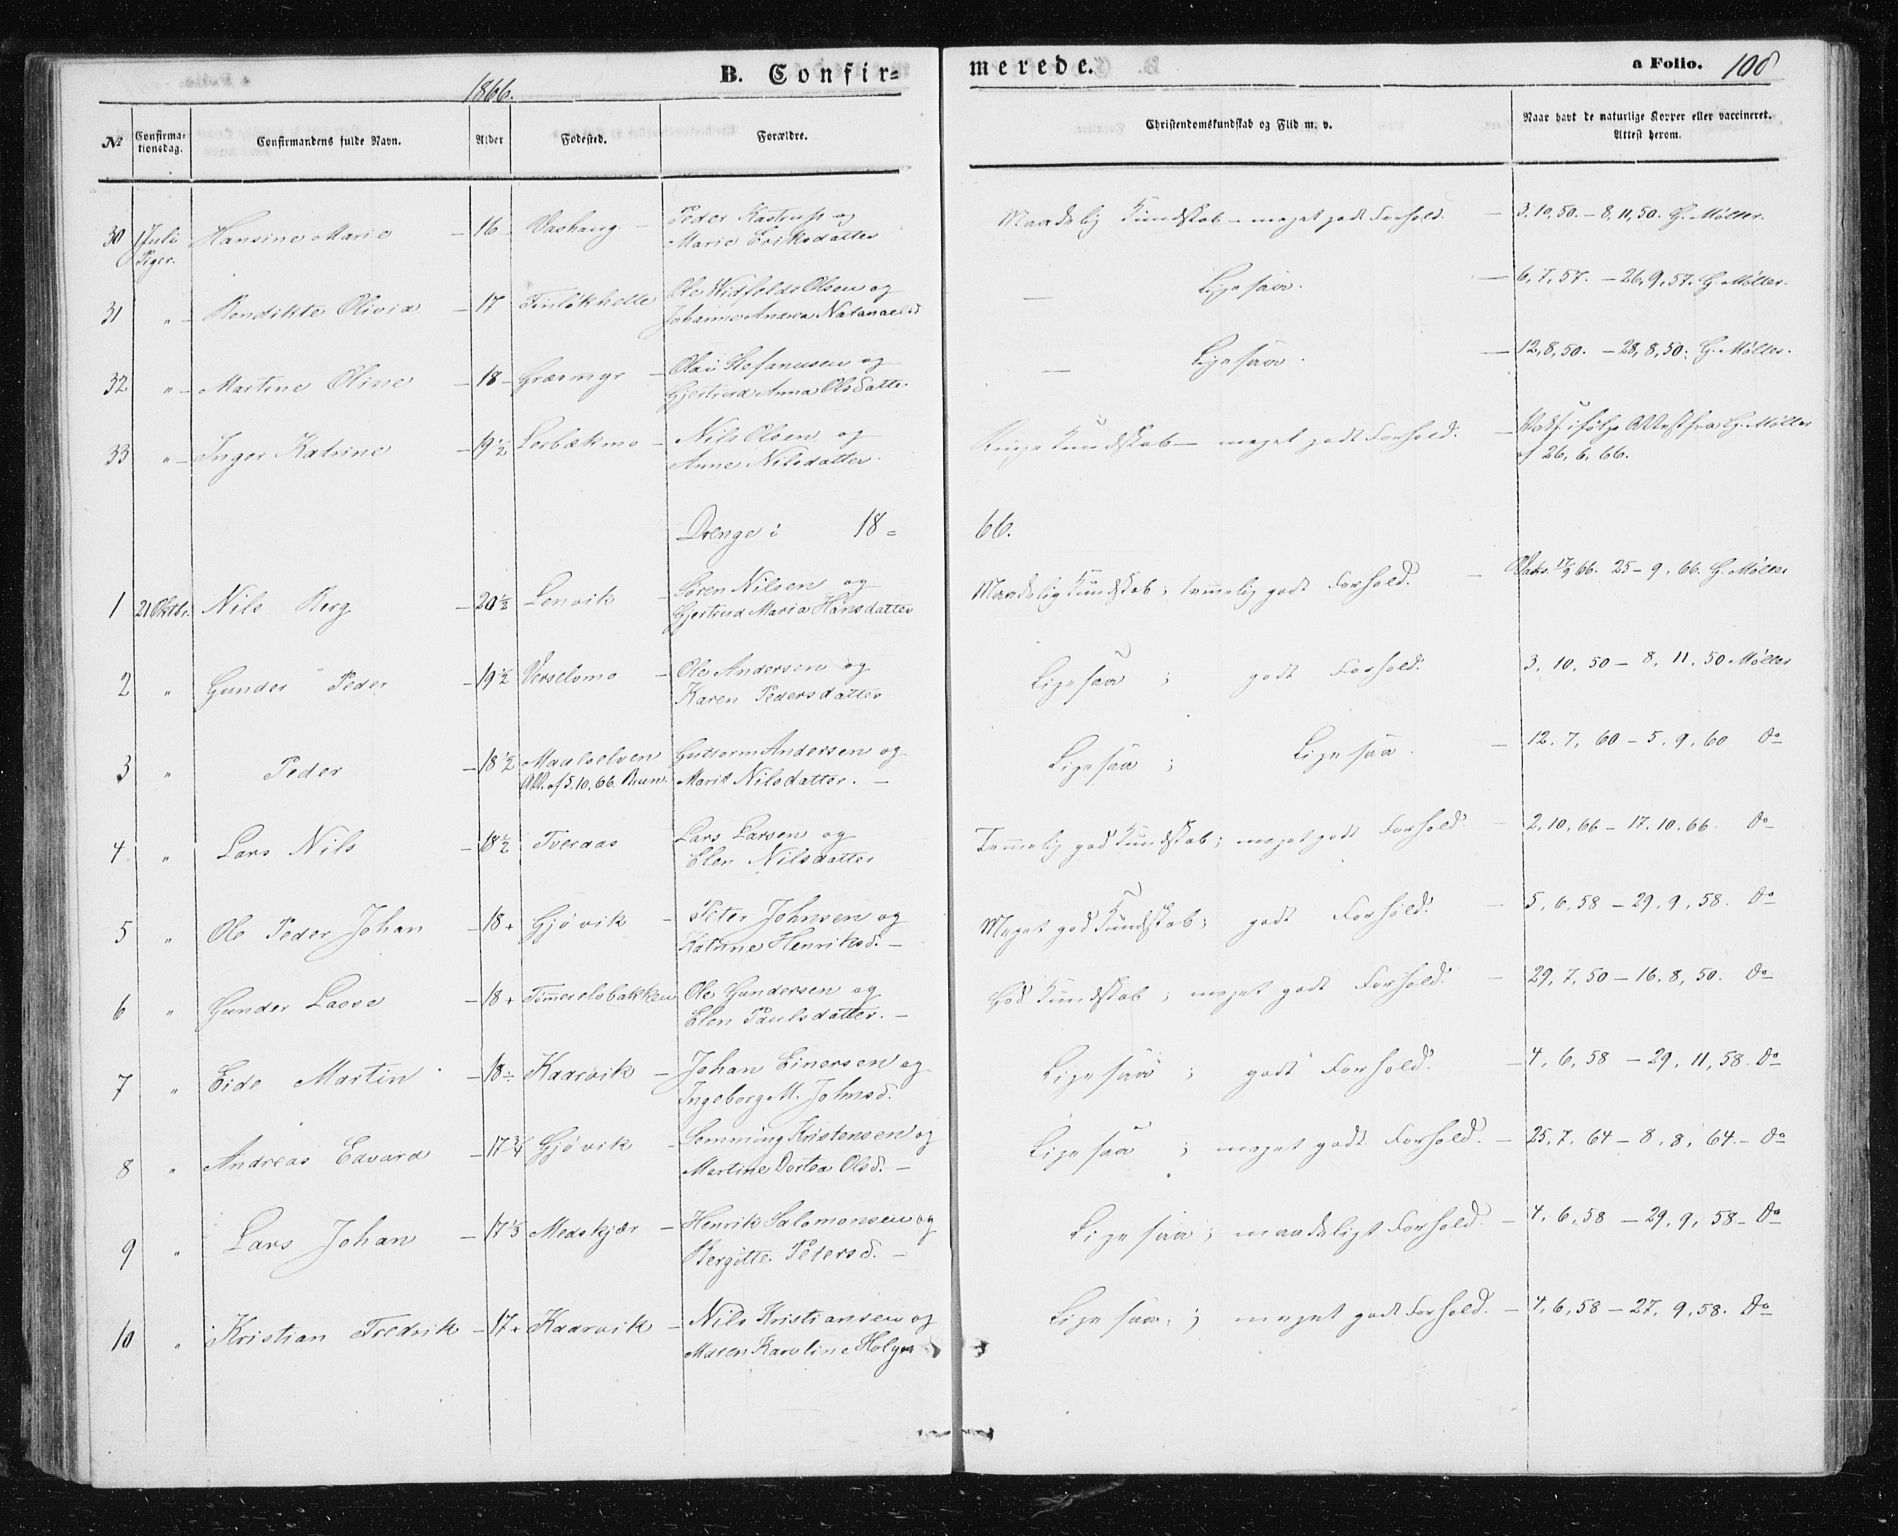 B. Confir=
merede.
a Folio. 108
1866.
№
Confirma-
tionsdag.
Confirmandens fulde Navn.
Alder
Fødested.
Forældre.
Christendomskundskab og Flid m. v.
Naar havt de naturlige Kopper eller vaccineret.
Attest herom.
30 1 Juli Hansine Marie – 16 – Vashaug – Peder Kastrup og Maadelig Kundskab – meget godt Forhold. – 3,10,50. – 8,11,50. G. Møller.
Piger. Marie Eriksdatter
31 " – Bendikte Olivia – 17 Finlökhelle Ole Olsen og – Ligesaa. – 6,7,57. – 26,9,57. G. Møller.
Johanne Andrea Natanaelsd
32 " – Martine Oline – 18 – Græsmyr – Olai Stefanusen og – Ligesaa. – 12,8,50. – 28,8,50. G. Møller.
Gjertrud Anna Olsdatter
33 " – Inger Katrine – 19½ Lerbækmo – Nils Olsen og Ringe Kundskab – meget godt Forhold. – ifølge Attest fra G. Møller
Anne Nilsdatter. af 26,6,66.
Drenge i 18=66.
1 21 Oktbr. Nils Berg – 20½ Lenvik – Sören Nilsen og Maadelig Kundskab; temmelig godt Forhold. – Vaks. 17/9 66. 25–9,66. G. Møller
Gjertrud Maria Hansdatter
2 " Gunder Peder – 19½ Verselvmo – Ole Andersen og Ligesaa; godt Forhold. 3,10,50 – 8,11,50 Møller
Karen Pedersdatter
3 " Peder – 18½ Maalselven Guttorm Andersen og Ligesaa; Ligesaa. – 12,7,60 – 5,9,60 Do
Att. af 5,10,66. Bruun. Marit Nilsdatter. –
4 " Lars Nils – 18½ Tveraas Lars Larsen og Temmelig god Kundskab; meget godt Forhold. – 2,10,66 – 17,10,66. Do
Elen Nilsdatter
5 " Ole Peder Johan – 18+ Gjövik – Peter Johnsen og Meget god Kundskab; godt Forhold. – 5,6,58 – 29,9,58. Do
Katrine Henriksd. –
6 " Gunder Lasse – 18+ Timmerelvbakken Ole Gundersen og God Kundskab; meget godt Forhold. – 29,7,50 – 16,8,50. Do
Elen Paulsdatter. –
7 " Eide Martin – 18 Kaarvik – Johan Einersen og Ligesaa; godt Forhold. – 4,6,58 – 29,11,58. Do
Ingeborg M. Johnsd.
8 " Andreas Edvard – 17¾ Gjövik – Lemming Kristensen og Ligesaa; meget godt Forhold. – 25,7,64 – 8,8,64. – Do
Martine Dortea Olsd. –
9 " Lars Johan – 17⅓ Medskjær – Henrik Salomonsen og Ligesaa; maadeligt Forhold. – 4,6,58 – 29,9,58 – Do
Bergitte Petersd. –
10 " Kristian Fredrik – 17+ Kaarvik – Nils Kristiansen og Ligesaa; meget godt Forhold. – 4,6,58 – 27,9,58. Do
Maren Karoline Holger